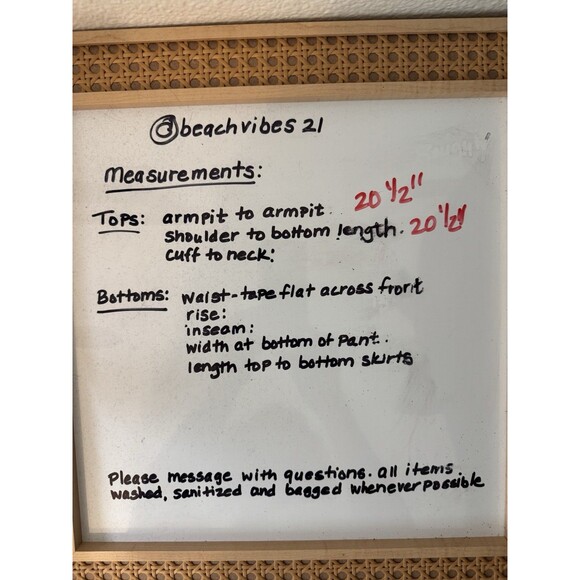 @beachvibes21
Measurements:
Tops: armpit to armpit. 20 1/2"
Shoulder to bottom length. 20 1/2"
Cuff to neck:
Bottoms: waist-tape flat across front
rise:
inseam:
width at bottom of pant.
length top to bottom skirts
Please message with questions. all items
washed, sanitized and bagged whenever possible